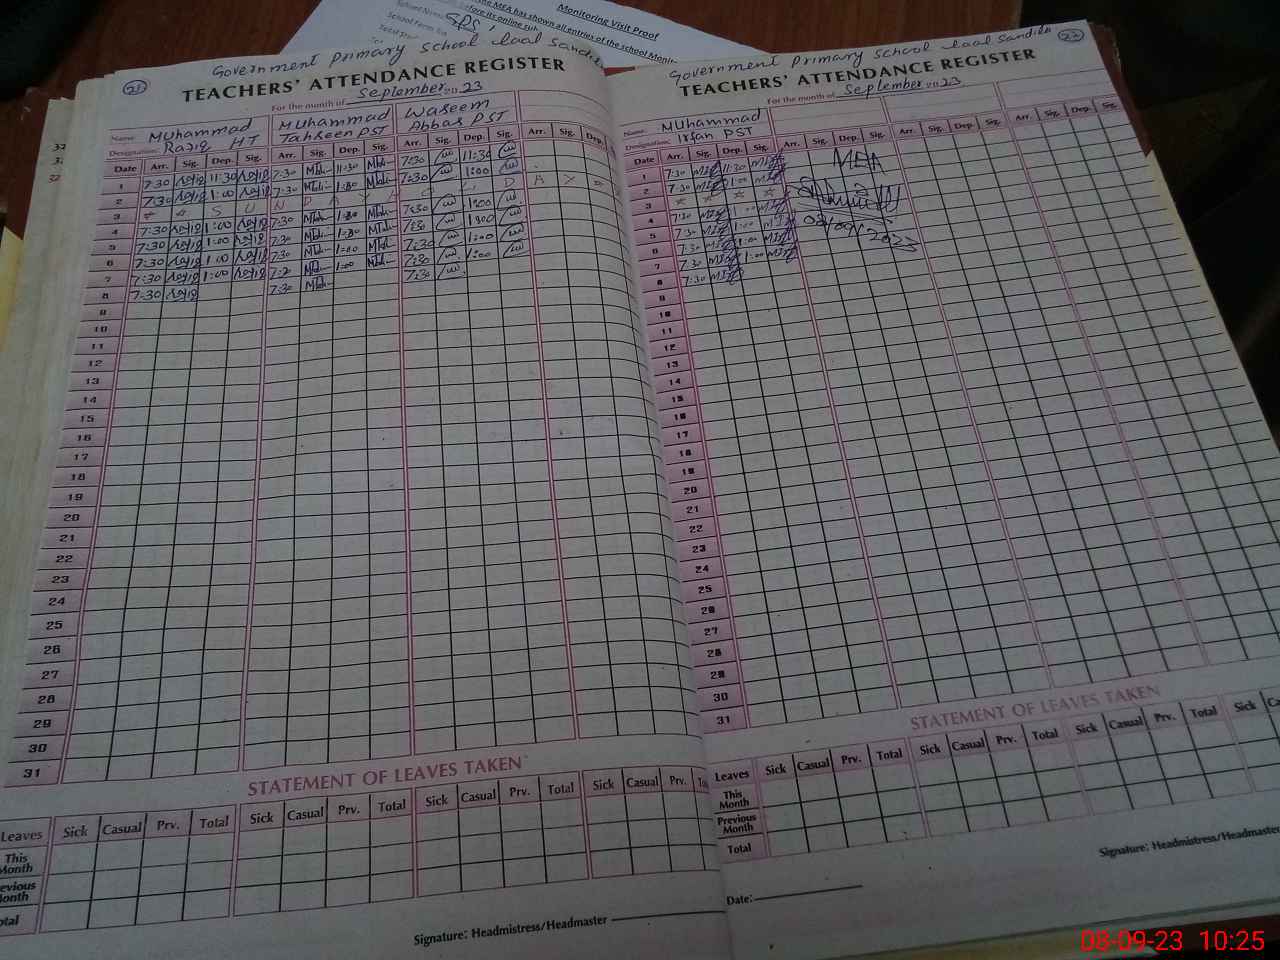 Monitoring Visit Proof
the MEA has shown all entries of the school Moni
before its online sub
School Name
School
GPS
21
Government Primary School Laal Sandila
TEACHERS' ATTENDANCE REGISTER
For the month of September 2023
Name: Muhammad Raziq Muhammad Tahseen Waseem Abbas
Designation: HT PST PST
Date Arr. Sig. Dep. Sig. Arr. Sig. Dep. Sig. Arr. Sig. Dep. Sig. Arr. Sig. Dep.
1 7:30 11:30 7:30 11:30 7:30 11:30
2 7:30 1:00 7:30 1:00 7:30 1:00
3 S U N D A Y D A Y
4 7:30 1:00 7:30 1:00 7:30 1:00
5 7:30 1:00 7:30 1:00 7:30 1:00
6 7:30 1:00 7:30 1:00 7:30 1:00
7 7:30 1:00 7:30 1:00 7:30 1:00
8 7:30 7:30 7:30
9
10
11
12
13
14
15
16
17
18
19
20
21
22
23
24
25
26
27
28
29
30
31
STATEMENT OF LEAVES TAKEN
Leaves Sick Casual Prv. Total Sick Casual Prv. Total Sick Casual Prv. Total Sick Casual Prv.
This Month
Previous Month
Total
Signature: Headmistress/Headmaster
22
Government Primary School Laal Sandila
TEACHERS' ATTENDANCE REGISTER
For the month of September 2023
Name: Muhammad Irfan
Designation: PST
Date Arr. Sig. Dep. Sig. Arr. Sig. Dep. Sig. Arr. Sig. Dep. Sig. Arr. Sig. Dep. Sig.
1 7:30 11:30 MEA
2 7:30 1:00
3
4 7:30 1:00 08/09/2023
5 7:30 1:00
6 7:30 1:00
7 7:30 1:00
8 7:30
9
10
11
12
13
14
15
16
17
18
19
20
21
22
23
24
25
26
27
28
29
30
31
STATEMENT OF LEAVES TAKEN
Leaves Sick Casual Prv. Total Sick Casual Prv. Total Sick Casual Prv. Total Sick
This Month
Previous Month
Total
Signature: Headmistress/Headmaster
Date:
08-09-23 10:25